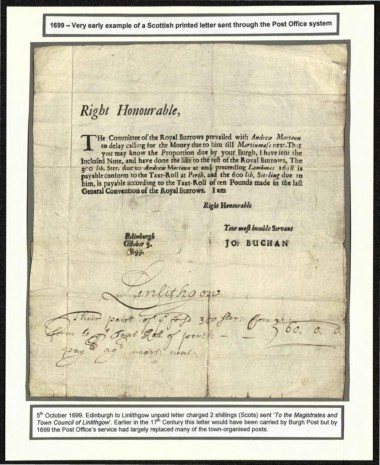 1699 – Very early example of a Scottish printed letter sent through the Post Office system
Right Honourable,
THe Committee of the Royal Burrows prevailed with Andrew Mortoun
to delay calling for the Money due to him till Martinmass next. That
you may know the Proportion due by your Burgh, I have sent the
Inclosed Note, and have done the like to the rest of the Royal Burrows, The
300 lib. Ster. due to Andrew Mortoun at and preceeding Lambmass 1698 is
payable conform to the Taxt-Roll at Perth, and the 600 lib. Sterling due to
him, is payable according to the Taxt-Roll of ten Pounds made in the last
General Convention of the Royal Burrows. I am
Right Honourable
Your most humble Servant
Edinburgh
October 5.
1699.
JO: BUCHAN
Linlithgow
Their part of ye 300 Ster:
Conform to ye Taxt Roll of
360. 0. 0.
pay
5th October 1699. Edinburgh to Linlithgow unpaid letter charged 2 shillings (Scots) sent 'To the Magistrates and
Town Council of Linlithgow'. Earlier in the 17th Century this letter would have been carried by Burgh Post but by
1699 the Post Office's service had largely replaced many of the town-organised posts.